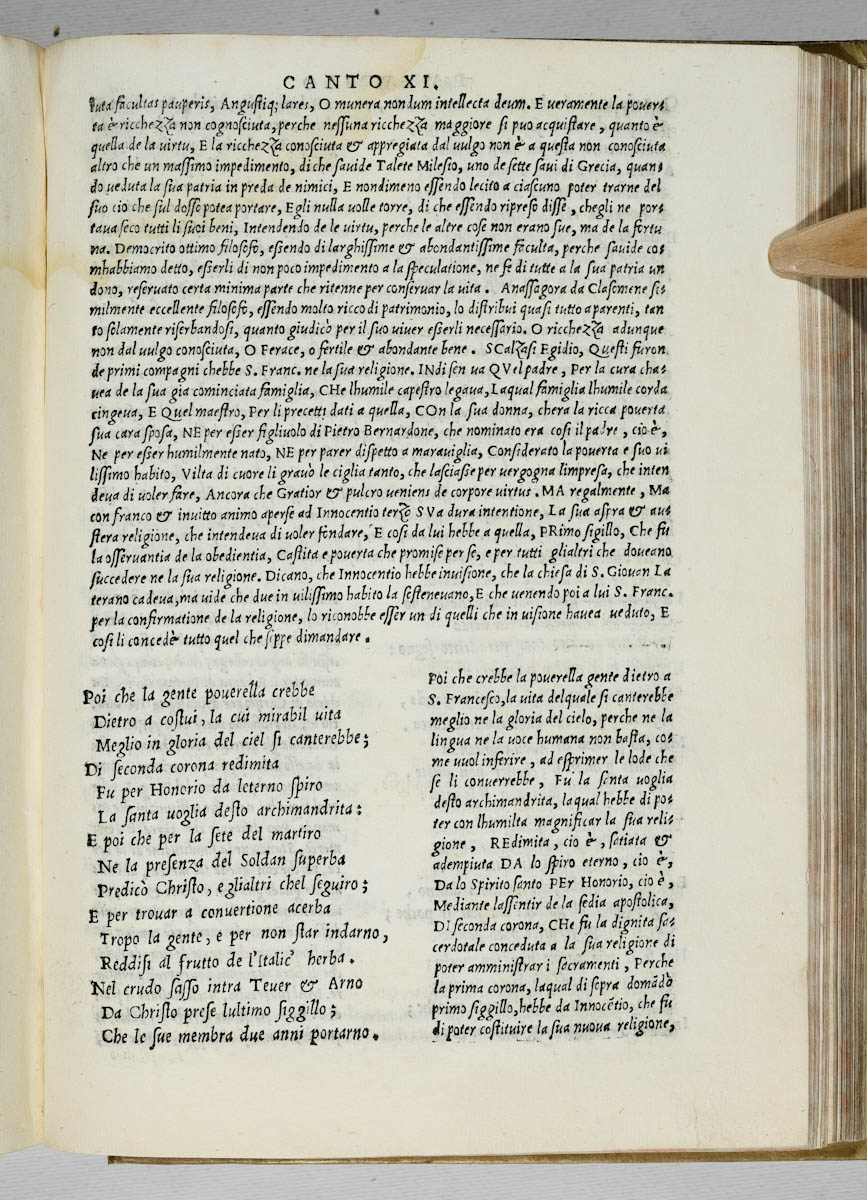 CANTO XI.
tuta facultas pauperis, Angustiq; lares, O munera nondum intellecta deum. E veramente la pouer⸗
ta è ricchezza non cognosciuta, perche nessuna ricchezza maggiore si puo acquistare, quanto è
quella de la virtu, E la ricchezza conosciuta & appregiata dal vulgo non è a questa non conosciuta
altro che un massimo impedimento, di che sauide Talete Milesio, uno de sette saui di Grecia, quan⸗
do veduta la sua patria in preda de nimici, E nondimeno essendo lecito a ciascuno poter trarne del
suo cio che sul dosso potea portare, Egli nulla volle torre, di che essendo ripreso disse, chegli ne por⸗
taua seco tutti li suoi beni, Intendendo de le virtu, perche le altre cose non erano sue, ma de la fortu
na. Democrito ottimo filosofo, essendo di larghissime & abondantissime faculta, perche sauide co⸗
mhabbiamo detto, esserli di non poco impedimento a la speculatione, ne fe di tutte a la sua patria un
dono, reseruato certa minima parte che ritenne per conseruar la vita. Anassagora da Clasomene si⸗
milmente eccellente filosofo, essendo molto ricco di patrimonio, lo distribui quasi tutto a parenti, tan
to solamente riserbandosi, quanto giudicò per il suo viuer esserli necessario. O ricchezza adunque
non dal vulgo conosciuta, O Ferace, o fertile & abondante bene. SCalzasi Egidio, Questi furon
de primi compagni chebbe S. Franc. ne la sua religione. INdi sen va QVel padre, Per la cura cha⸗
uea de la sua gia cominciata famiglia, CHe lhumile capestro legaua, Laqual famiglia lhumile corda
cingeua, E Quel maestro, Per li precetti dati a quella, COn la sua donna, chera la ricca pouerta
sua cara sposa, NE per esser figliuolo di Pietro Bernardone, che nominato era cosi il padre, cio è,
Ne per esser humilmente nato, NE per parer dispetto a marauiglia, Considerato la pouerta e suo vi
lissimo habito, Vilta di cuore li grauò le ciglia tanto, che lasciasse per vergogna limpresa, che inten
deua di voler fare, Ancora che Gratior & pulcro veniens de corpore virtus. MA regalmente, Ma
con franco & inuitto animo aperse ad Innocentio terzo SVa dura intentione, La sua aspra & au⸗
stera religione, che intendeua di voler fondare, E cosi da lui hebbe a quella, PRimo sigillo, Che fu
la osseruantia de la obedientia, Castita e pouerta che promise per se, e per tutti glialtri che doueano
succedere ne la sua religione. Dicano, che Innocentio hebbe inuisione, che la chiesa di S. Giouan La
terano cadeua, ma vide che due in vilissimo habito la sosteneuano, E che venendo poi a lui S. Franc.
per la confirmatione de la religione, lo riconobbe esser un di quelli che in visione hauea veduto, E
cosi li concedè tutto quel che seppe dimandare.
Poi che la gente pouerella crebbe
Dietro a costui, la cui mirabil vita
Meglio in gloria del ciel si canterebbe;
Di seconda corona redimita
Fu per Honorio da leterno spiro
La santa voglia desto archimandrita:
E poi che per la sete del martiro
Ne la presenza del Soldan superba
Predicò Christo, e glialtri chel seguiro;
E per trouar a conuertione acerba
Tropo la gente, e per non star indarno,
Reddisi al frutto de l'Italic' herba.
Nel crudo sasso intra Teuer & Arno
Da Christo prese lultimo siggillo;
Che le sue membra due anni portarno.
Poi che crebbe la pouerella gente dietro a
S. Francesco, la vita del quale si canterebbe
meglio ne la gloria del cielo, perche ne la
lingua ne la voce humana non basta, co⸗
me vuol inferire, ad esprimer le lode che
se li conuerrebbe, Fu la santa voglia
desto archimandrita, laqual hebbe di po⸗
ter con lhumilta magnificar la sua reli⸗
gione, REdimita, cio è, satiata &
adempiuta DA lo spiro eterno, cio è,
Da lo Spirito santo PEr Honorio, cio è,
Mediante lassentir de la sedia apostolica,
DI seconda corona, CHe fu la dignita sa⸗
cerdotale conceduta a la sua religione di
poter amministrar i sacramenti, Perche
la prima corona, laqual di sepra domādò
primo siggillo, hebbe da Innocētio, che fu
di poter costituire la sua nuoua religione,